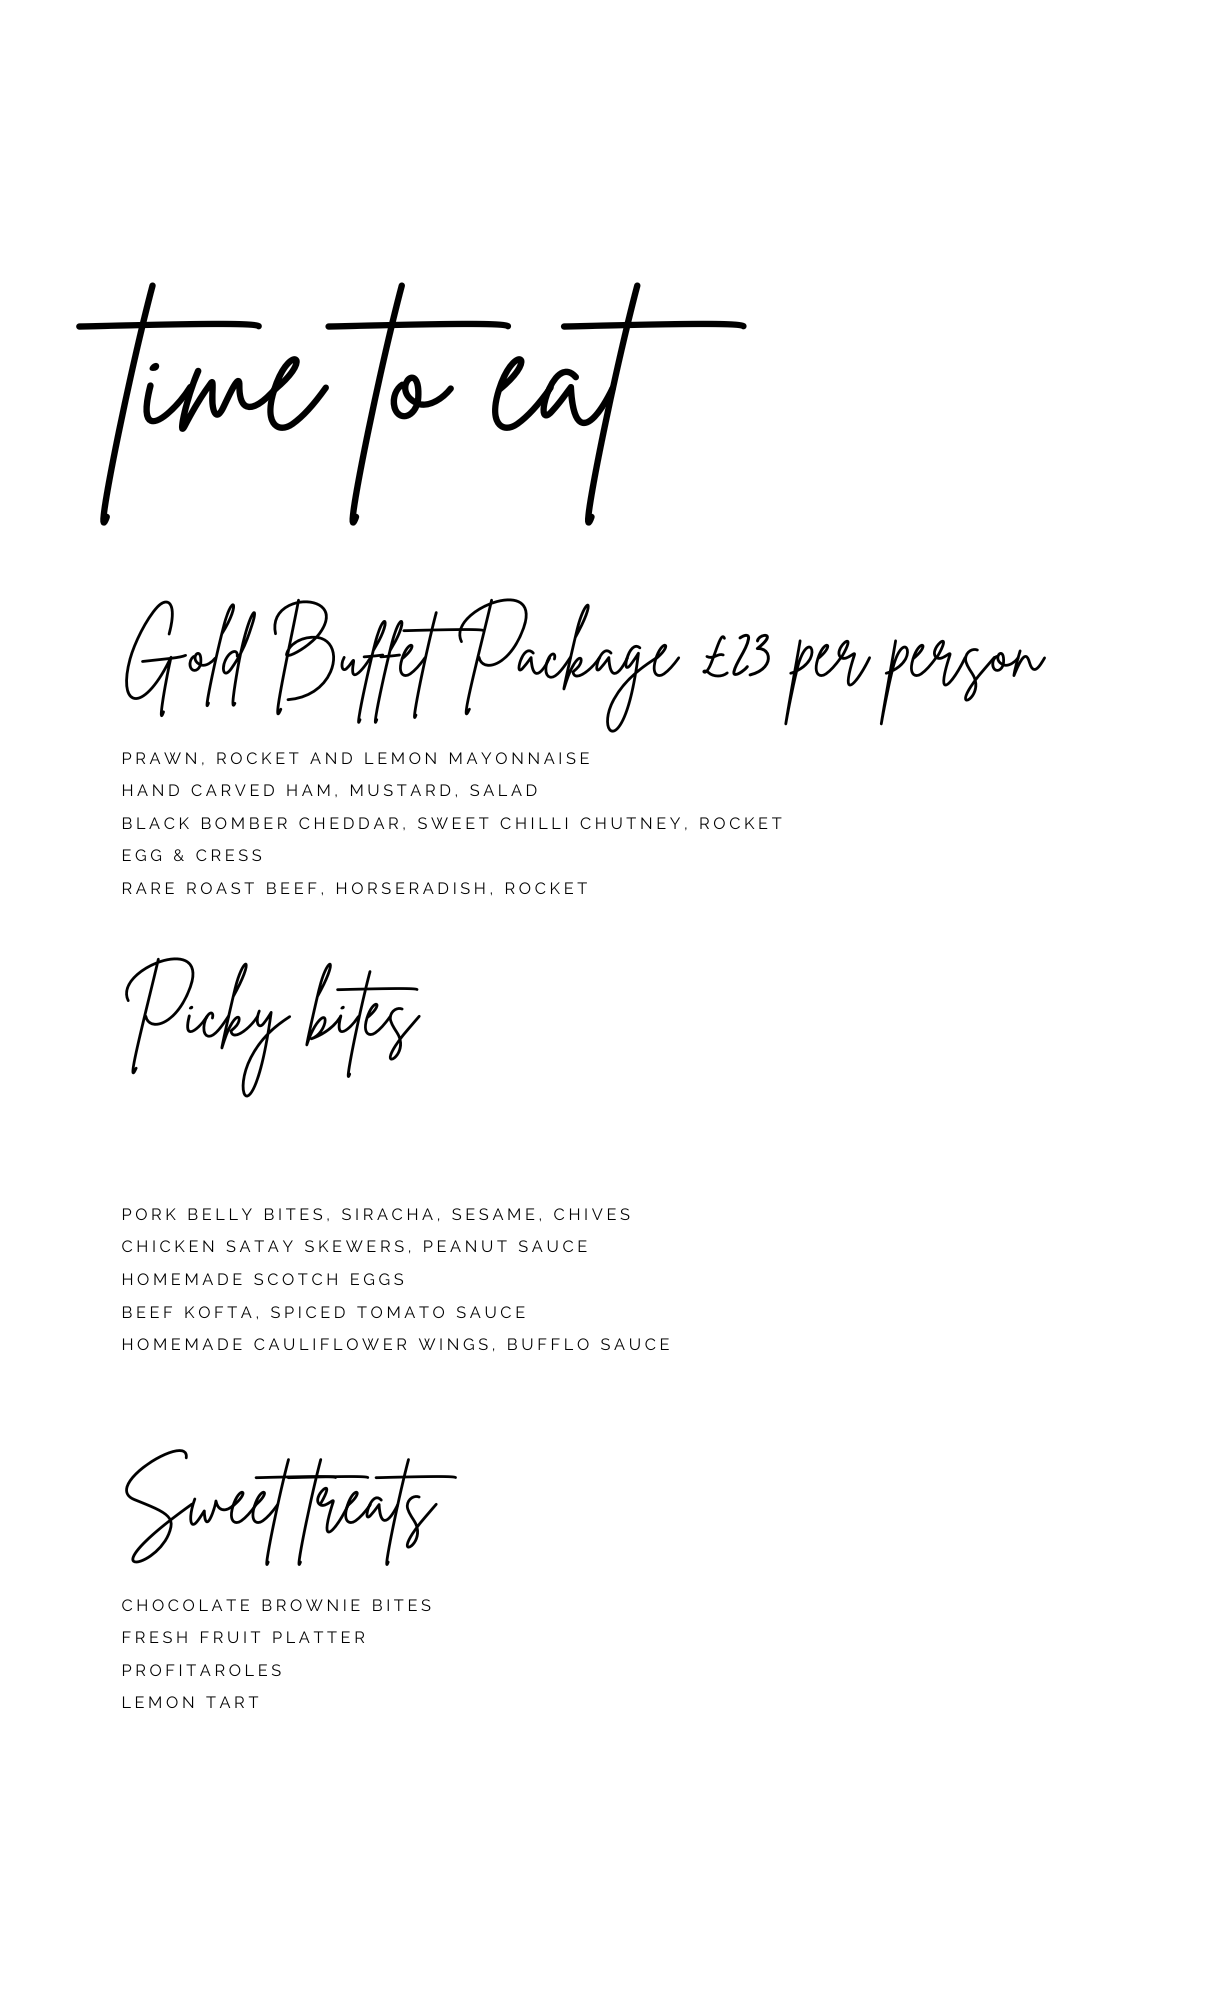 time to eat
Gold Buffet Package £23 per person
PRAWN, ROCKET AND LEMON MAYONNAISE
HAND CARVED HAM, MUSTARD, SALAD
BLACK BOMBER CHEDDAR, SWEET CHILLI CHUTNEY, ROCKET
EGG & CRESS
RARE ROAST BEEF, HORSERADISH, ROCKET
Picky bites
PORK BELLY BITES, SIRACHA, SESAME, CHIVES
CHICKEN SATAY SKEWERS, PEANUT SAUCE
HOMEMADE SCOTCH EGGS
BEEF KOFTA, SPICED TOMATO SAUCE
HOMEMADE CAULIFLOWER WINGS, BUFFLO SAUCE
Sweet treats
CHOCOLATE BROWNIE BITES
FRESH FRUIT PLATTER
PROFITAROLES
LEMON TART